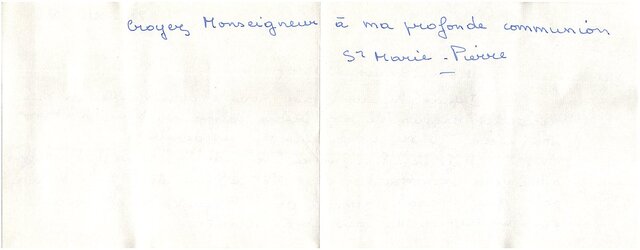 Croyez Monseigneur à ma profonde communion
Sr Marie-Pierre